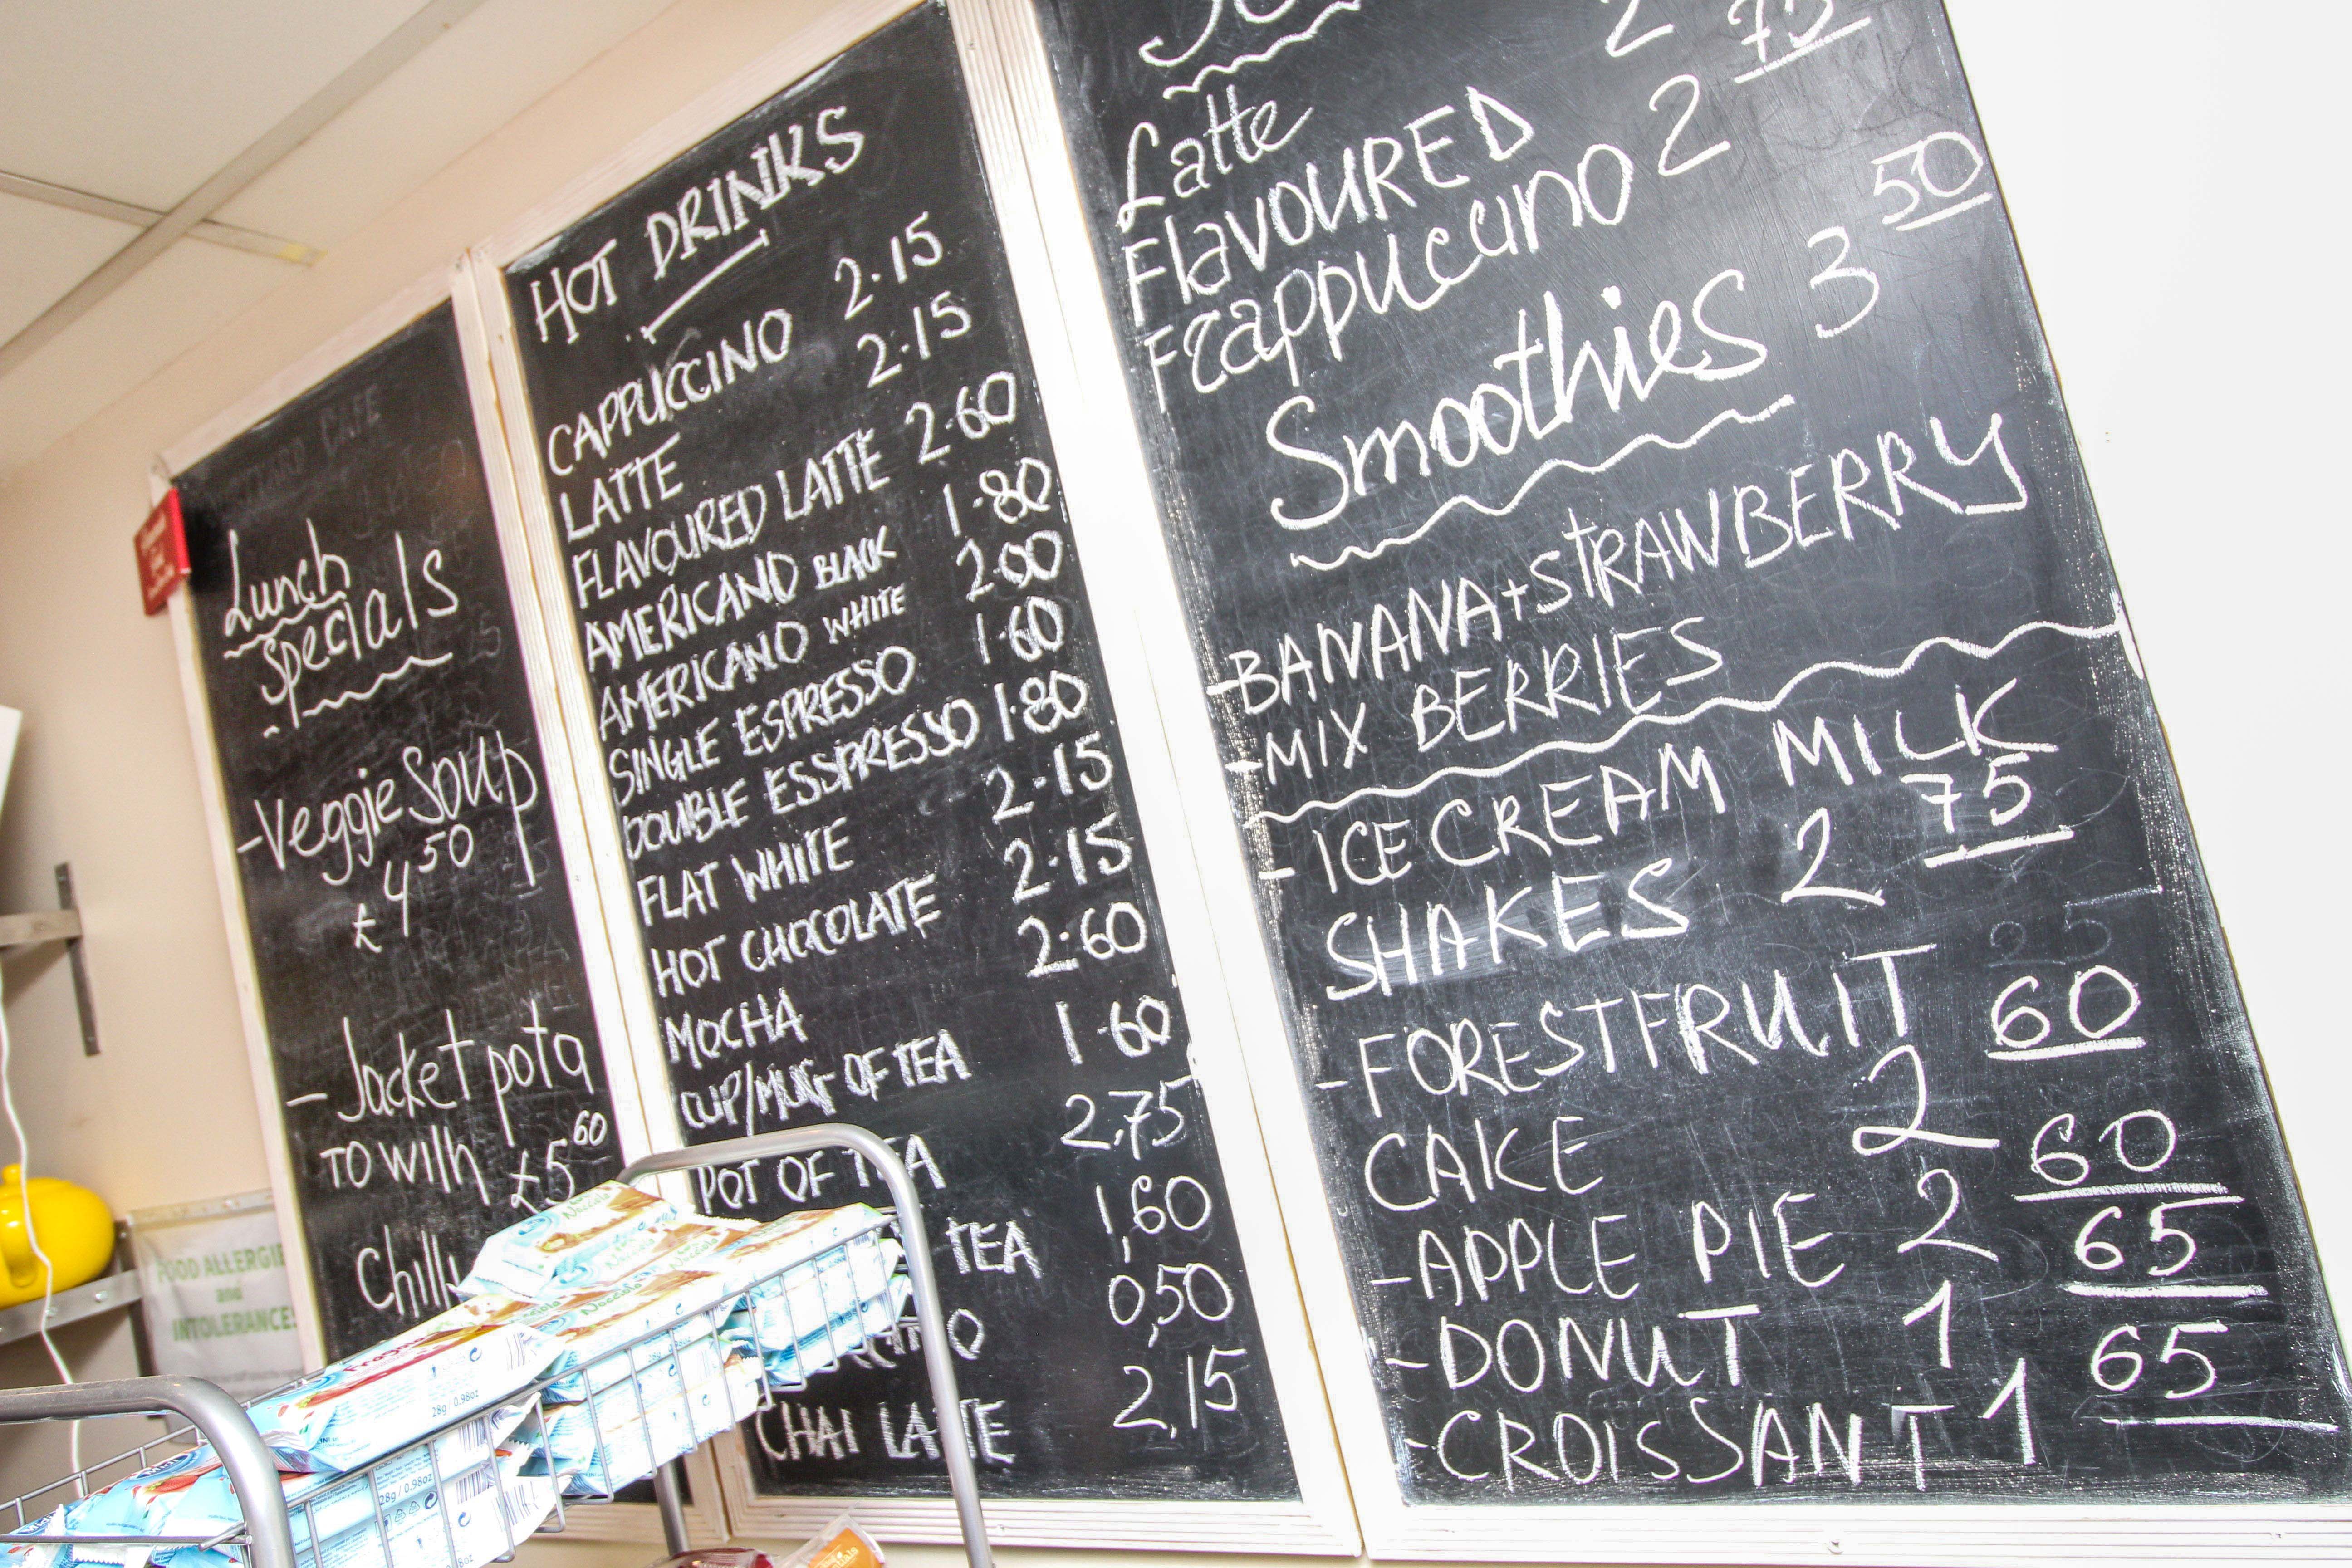 Lunch
Specials
-Veggie Soup
£4 50
- Jacket pota
TO with £5 60
Chilli
HOT DRINKS
CAPPUCCINO 2.15
LATTE 2.15
FLAVOURED LATTE 2.60
AMERICANO BLACK 1.80
AMERICANO WHITE 2.00
SINGLE ESPRESSO 1.60
DOUBLE ESSPRESSO 1.80
FLAT WHITE 2.15
HOT CHOCOLATE 2.15
MOCHA 2.60
CUP/MUG OF TEA 1.60
POT OF TEA 2,75
TEA 1,60
0,50
CHAI LATTE 2,15
Latte 2 75
FLAVOURED
FRappuccino 2
Smoothies 3 50
-BANANA+STRAWBERRY
-MIX BERRIES
- ICE CREAM MILK
SHAKES 2 75
-FORESTFRUIT
CAKE 2 60
-APPLE PIE 2 60
-DONUT 1 65
-CROISSANT 1 65
FOOD ALLERGIES
and
INTOLERANCES
Nocciola
Nocciola
28g / 0.98oz
28g / 0.98oz